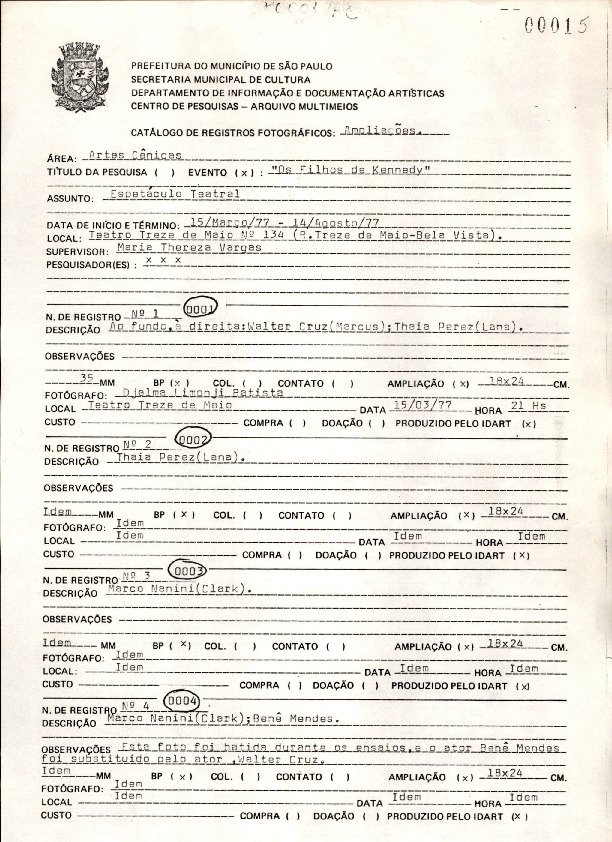 00015
PREFEITURA DO MUNICÍPIO DE SÃO PAULO
SECRETARIA MUNICIPAL DE CULTURA
DEPARTAMENTO DE INFORMAÇÃO E DOCUMENTAÇÃO ARTÍSTICAS
CENTRO DE PESQUISAS – ARQUIVO MULTIMEIOS
CATÁLOGO DE REGISTROS FOTOGRÁFICOS: Ampliações.
ÁREA: Artes Cênicas
TÍTULO DA PESQUISA ( ) EVENTO (x) : "Os Filhos de Kennedy"
ASSUNTO: Espetáculo Teatral
DATA DE INÍCIO E TÉRMINO: 15/Março/77 - 14/Agosto/77
LOCAL: Teatro Treze de Maio Nº 134 (R.Treze de Maio-Bela Vista).
SUPERVISOR: Maria Thereza Vargas
PESQUISADOR(ES) : x x x
N. DE REGISTRO Nº 1 0001
DESCRIÇÃO Ao fundo,à direita:Walter Cruz(Marcus);Thaia Perez(Lana).
OBSERVAÇÕES
35 MM BP (x) COL. ( ) CONTATO ( ) AMPLIAÇÃO (x) 18x24 CM.
FOTÓGRAFO: Djalma Limonji Batista
LOCAL Teatro Treze de Maio DATA 15/03/77 HORA 21 Hs
CUSTO COMPRA ( ) DOAÇÃO ( ) PRODUZIDO PELO IDART (x)
N. DE REGISTRO Nº 2 0002
DESCRIÇÃO Thaia Perez(Lana).
OBSERVAÇÕES
Idem MM BP (x) COL. ( ) CONTATO ( ) AMPLIAÇÃO (x) 18x24 CM.
FOTÓGRAFO: Idem
LOCAL Idem DATA Idem HORA Idem
CUSTO COMPRA ( ) DOAÇÃO ( ) PRODUZIDO PELO IDART (x)
N. DE REGISTRO Nº 3 0003
DESCRIÇÃO Marco Nanini(Clark).
OBSERVAÇÕES
Idem MM BP (x) COL. ( ) CONTATO ( ) AMPLIAÇÃO (x) 18x24 CM.
FOTÓGRAFO: Idem
LOCAL: Idem DATA Idem HORA Idem
CUSTO COMPRA ( ) DOAÇÃO ( ) PRODUZIDO PELO IDART (x)
N. DE REGISTRO Nº 4 0004
DESCRIÇÃO Marco Nanini(Clark);Benê Mendes.
OBSERVAÇÕES Esta foto foi batida durante os ensaios,e o ator Benê Mendes
foi substituído pelo ator ,Walter Cruz.
Idem MM BP (x) COL. ( ) CONTATO ( ) AMPLIAÇÃO (x) 18x24 CM.
FOTÓGRAFO: Idem
LOCAL Idem DATA Idem HORA Idem
CUSTO COMPRA ( ) DOAÇÃO ( ) PRODUZIDO PELO IDART (x)